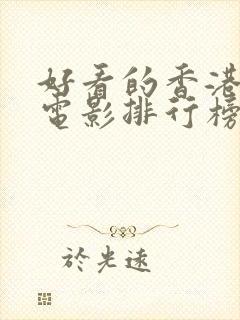 好看的香港
电影排行榜
於光远